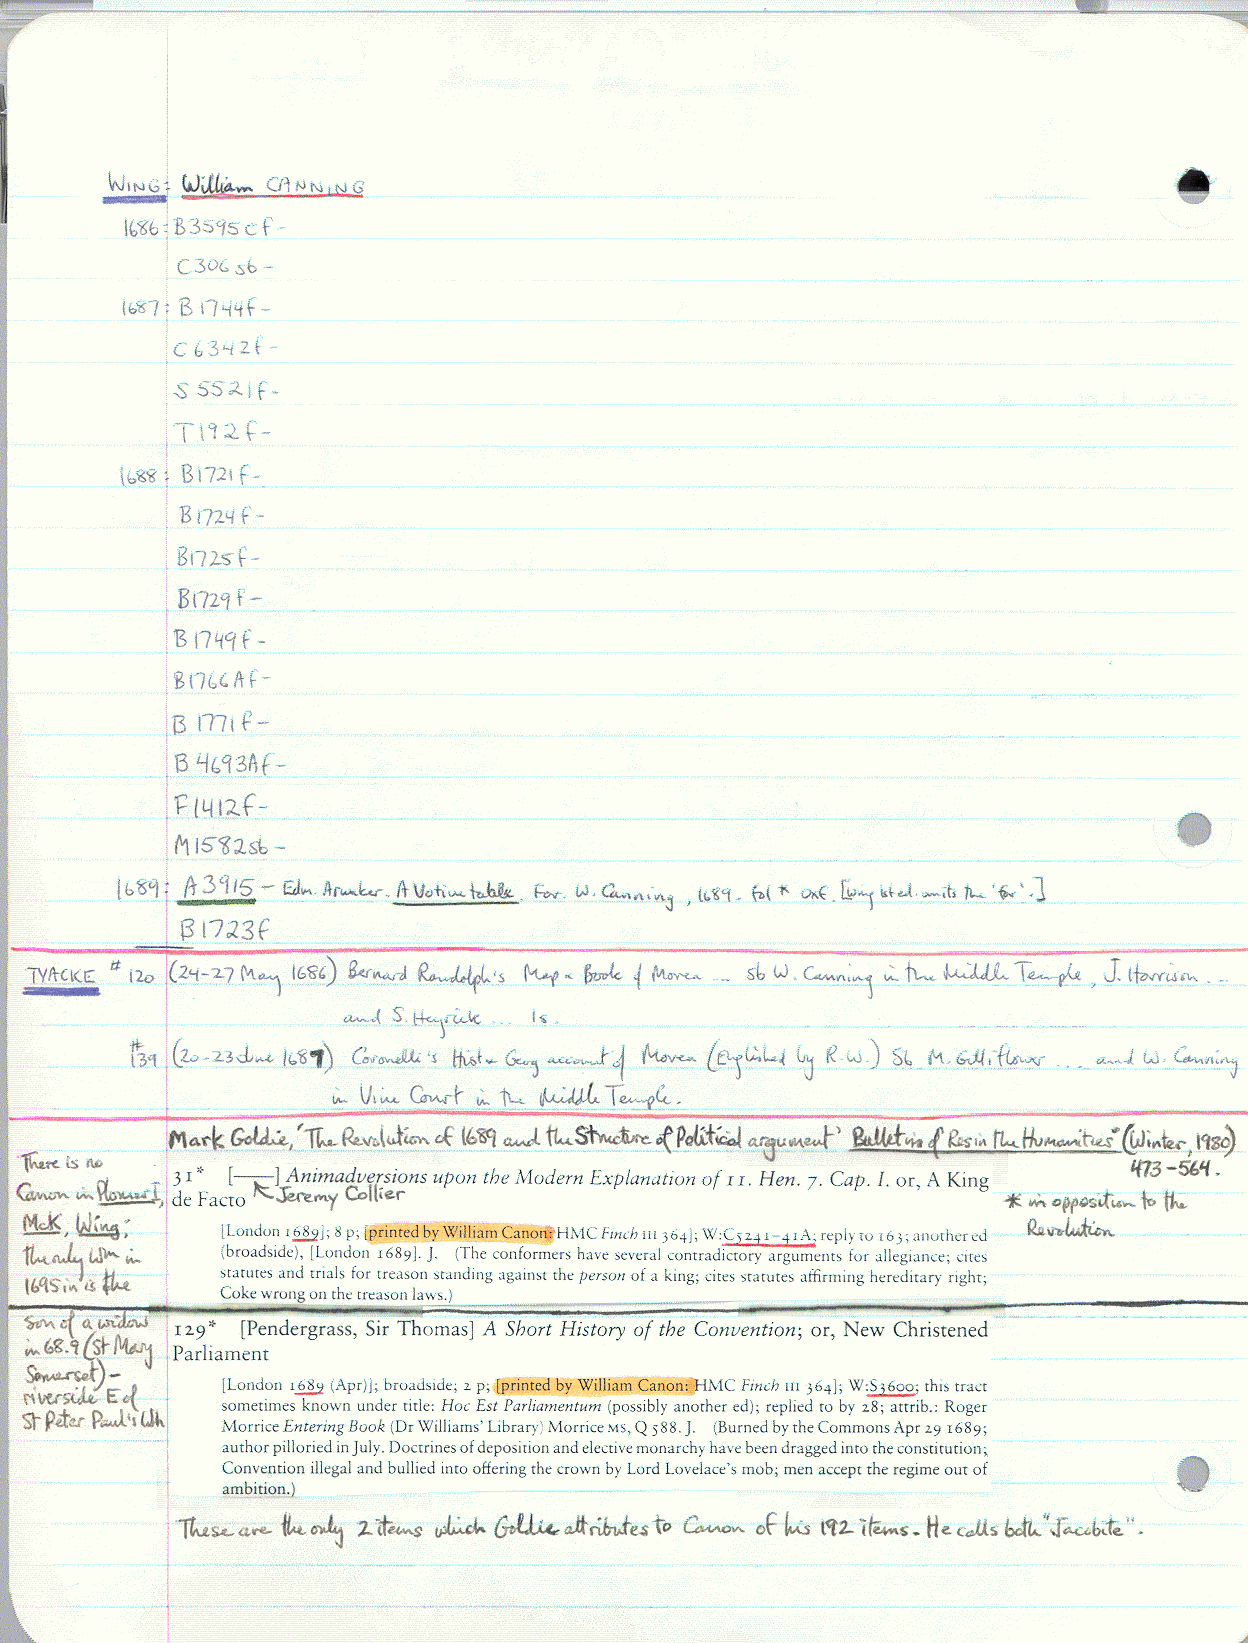 WING: William CANNING
1686: B3595cf-
C306sb-
1687: B1744f-
C6342f-
S5521f-
T192f-
1688: B1721f-
B1724f-
B1725f-
B1729f-
B1749f-
B1766Af-
B1771f-
B4693Af-
F1412f-
M1582sb-
1689: A3915 - Edm. Arwaker. A Votive table. For W. Canning, 1689. fol * OXF. [Wing 1st ed. omits the 'for'.]
B1723f
TYACKE #120 (24-27 May 1686) Bernard Randolph's Map & Book of Morea ... sb W. Canning in the Middle Temple, J. Harrison ...
and S. Heyrick ... 1s.
#139 (20-23 June 1687) Coronelli's Hist & Geog account of Morea (Englished by R.W.) Sb M. Gilliflower ... and W. Canning
in Vine Court in the Middle Temple.
Mark Goldie, 'The Revolution of 1689 and the Structure of Political argument' Bulletin of Res in the Humanities" (Winter, 1980)
473-564.
There is no
Canon in Plomer I,
McK, Wing;
the only Wm in
1695 in is the
son of a widow
in 68.9 (St Mary
Somerset) -
riverside E of
St Peter Paul's Wh
31* [——] Animadversions upon the Modern Explanation of 11. Hen. 7. Cap. I. or, A King
de Facto
Jeremy Collier
* in opposition to the
Revolution
[London 1689]; 8 p; [printed by William Canon: HMC Finch III 364]; W:C5241-41A; reply to 163; another ed
(broadside), [London 1689]. J. (The conformers have several contradictory arguments for allegiance; cites
statutes and trials for treason standing against the person of a king; cites statutes affirming hereditary right;
Coke wrong on the treason laws.)
129* [Pendergrass, Sir Thomas] A Short History of the Convention; or, New Christened
Parliament
[London 1689 (Apr)]; broadside; 2 p; [printed by William Canon: HMC Finch III 364]; W:S3600; this tract
sometimes known under title: Hoc Est Parliamentum (possibly another ed); replied to by 28; attrib.: Roger
Morrice Entering Book (Dr Williams' Library) Morrice MS, Q 588. J. (Burned by the Commons Apr 29 1689;
author pilloried in July. Doctrines of deposition and elective monarchy have been dragged into the constitution;
Convention illegal and bullied into offering the crown by Lord Lovelace's mob; men accept the regime out of
ambition.)
These are the only 2 items which Goldie attributes to Canon of his 192 items. He calls both "Jacobite".